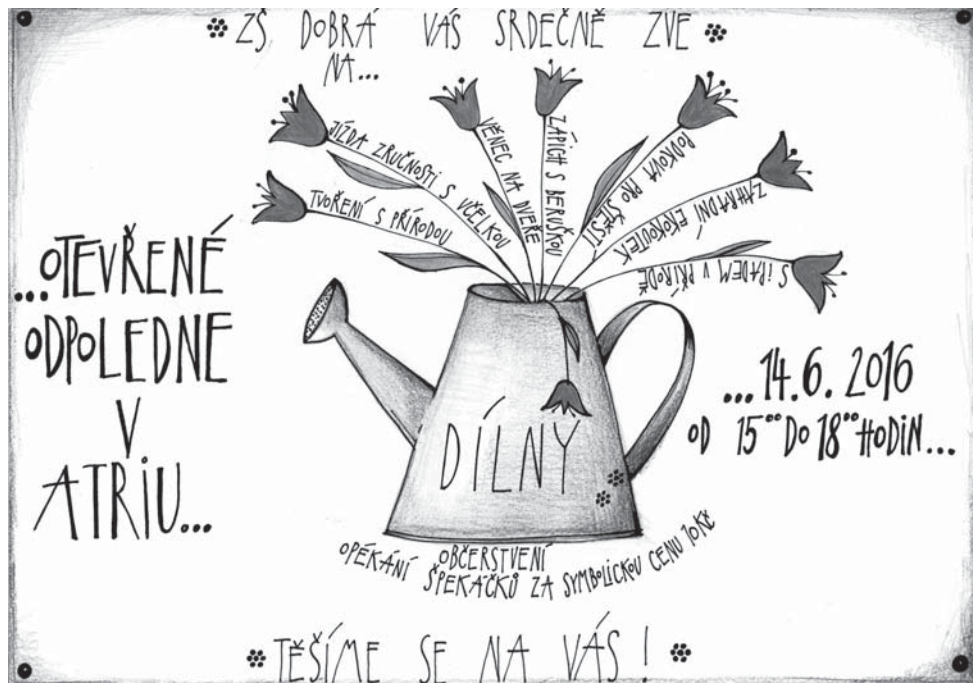 ZŠ DOBRÁ VÁS SRDEČNĚ ZVE
NA...
...OTEVŘENÉ
ODPOLEDNE
V
ATRIU...
TVOŘENÍ S PŘÍRODOU
JÍZDA ZRUČNOSTI S VČELKOU
VĚNEC NA DVEŘE
ZÁPICH S BERUŠKOU
PODKOVA PRO ŠTĚSTÍ
ZAHRADNÍ EKOKOUTEK
S iPADEM V PŘÍRODĚ
DÍLNY
...14.6. 2016
OD 15°° DO 18°° HODIN...
OBČERSTVENÍ
OPÉKÁNÍ ŠPEKÁČKŮ ZA SYMBOLICKOU CENU 10 KČ
TĚŠÍME SE NA VÁS!